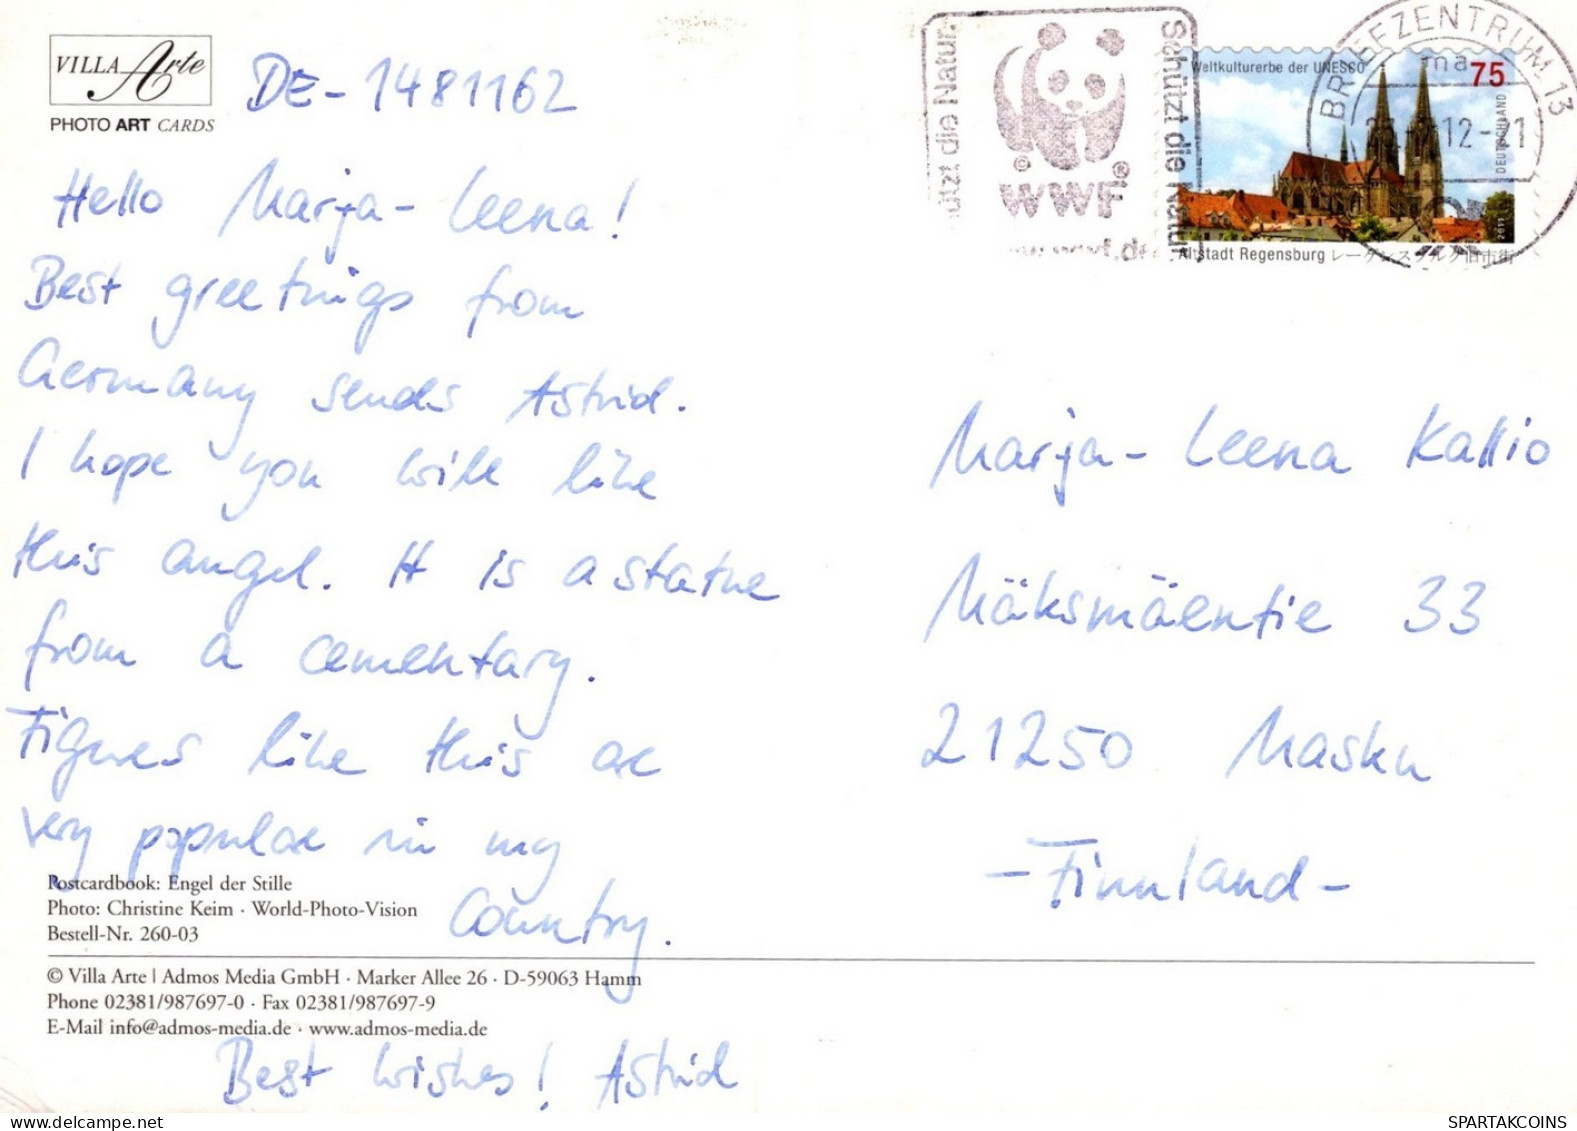 VILLA Arte
PHOTO ART CARDS
DE-1481162
Hello Marja-Leena!
Best greetings from
Germany sends Astrid.
I hope you will like
this angel. It is a statue
from a cementary.
Figures like this are
very popular in my
Country.
Postcardbook: Engel der Stille
Photo: Christine Keim · World-Photo-Vision
Bestell-Nr. 260-03
© Villa Arte | Admos Media GmbH · Marker Allee 26 · D-59063 Hamm
Phone 02381/987697-0 · Fax 02381/987697-9
E-Mail info@admos-media.de · www.admos-media.de
Best wishes! Astrid
Schützt die Natur
© WWF®
Weltkulturerbe der UNESCO
75
DEUTSCHLAND
2011
Altstadt Regensburg レーゲンスブルク旧市街
BRIEFZENTRUM 13
Marja-Leena Kallio
Mäksmäentie 33
21250 Masku
-Finnland-
SPARTAKCOINS